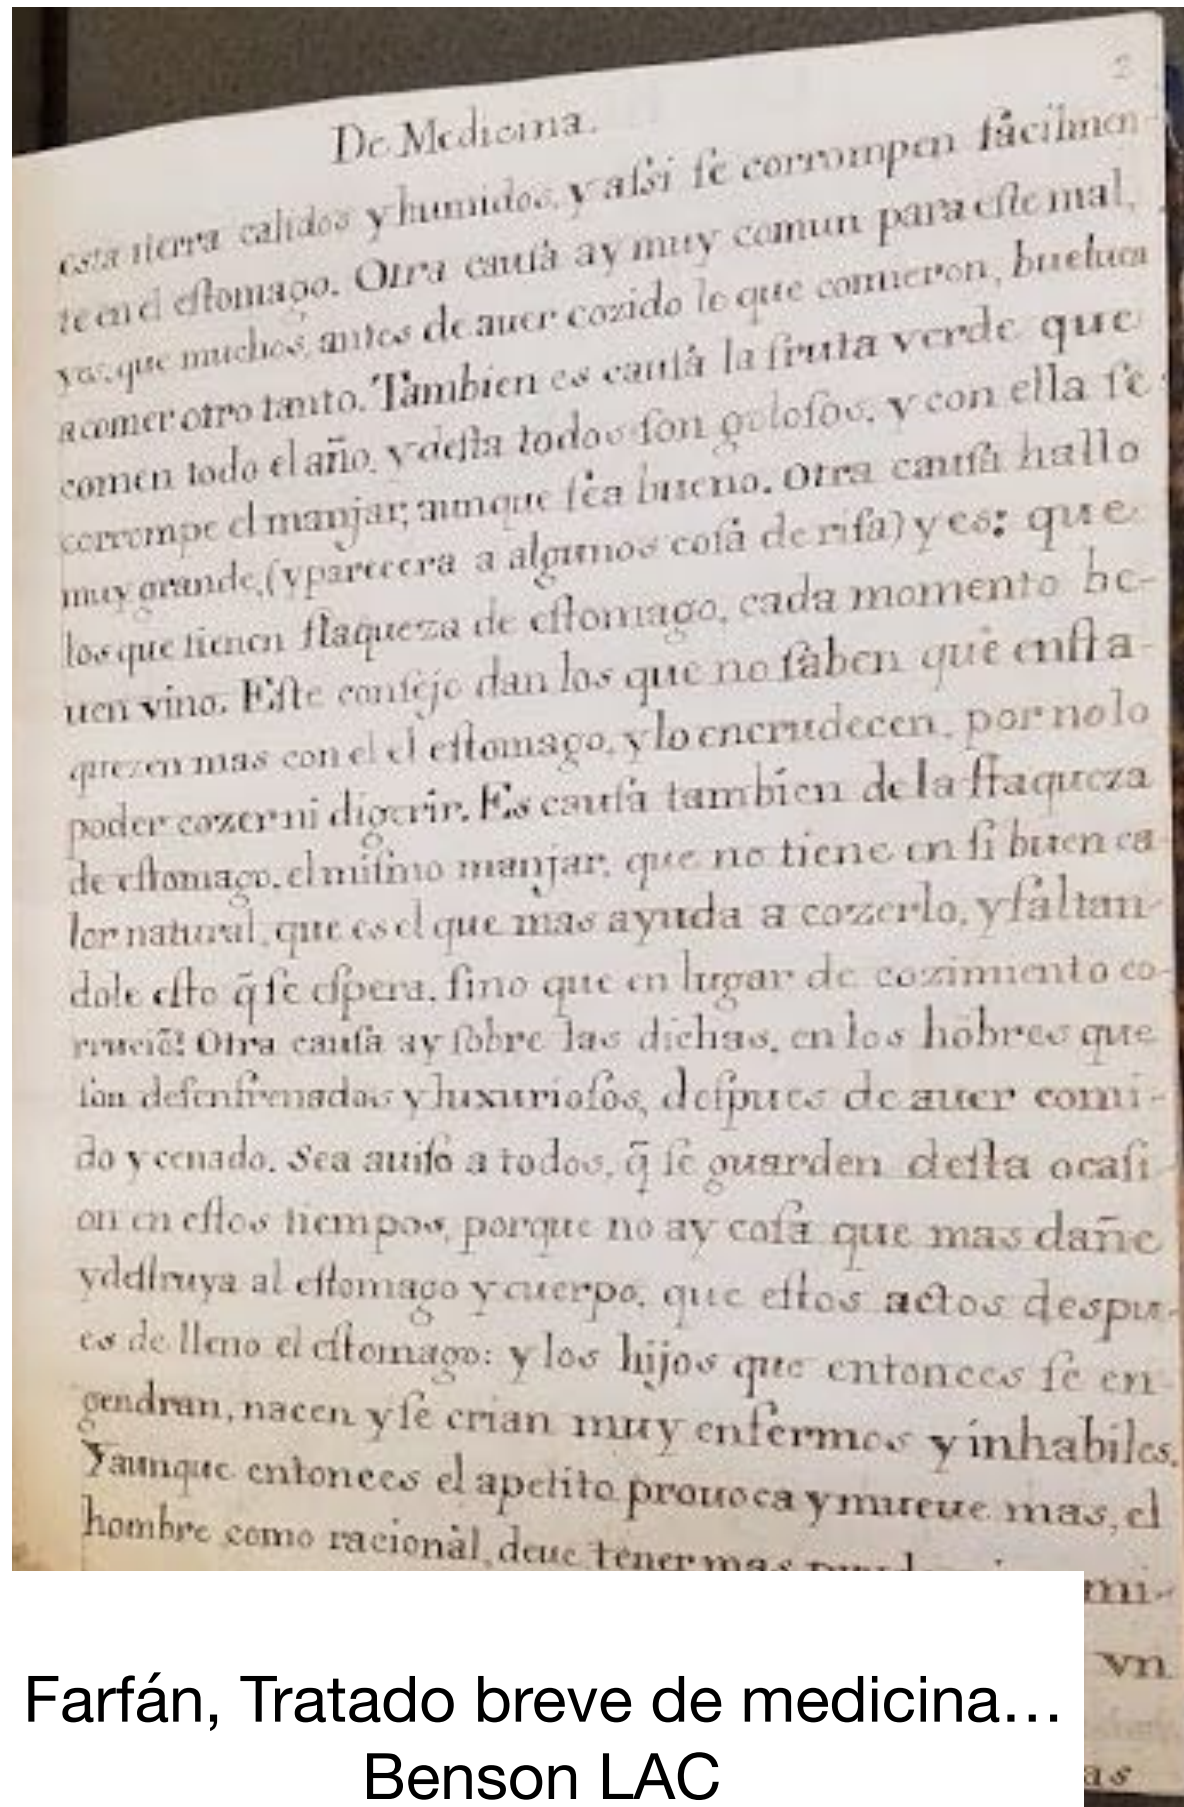 2
De Medicina.
esta tierra calidos y humidos, y aſsi ſe corrompen fácilmen-
te en el eſtomago. Otra cauſa ay muy comun para eſte mal,
y es, que muchos, antes de auer cozido lo que comieron, bueluen
a comer otro tanto. Tambien es cauſa la fruta verde que
comen todo el año, y deſta todos ſon goloſos, y con ella ſe
corrompe el manjar, aunque ſea bueno. Otra cauſa hallo
muy grande, (y parecera a algunos coſa de riſa) y es: que
los que tienen flaqueza de eſtomago, cada momento be-
uen vino. Eſte conſejo dan los que no ſaben que enfla-
quezen mas con el el eſtomago, y lo encrudecen, por no lo
poder cozer ni digerir. Es cauſa tambien de la flaqueza
de eſtomago, el miſmo manjar, que no tiene en ſi buen ca-
lor natural, que es el que mas ayuda a cozerlo, y faltan-
dole eſto q̃ ſe eſpera, ſino que en lugar de cozimiento co-
rrució? Otra cauſa ay ſobre las dichas, en los hōbres que
ſon deſenfrenados y luxurioſos, deſpues de auer comi-
do y cenado. Sea auiſo a todos, q̃ ſe guarden deſta ocaſi-
on en eſtos tiempos, porque no ay coſa que mas dañe
y deſtruya al eſtomago y cuerpo, que eſtos actos despu-
es de lleno el eſtomago: y los hijos que entonces ſe en-
gendran, nacen y ſe crian muy enfermos y inhabiles.
Y aunque entonces el apetito prouoca y mueue mas, el
hombre como racionàl, deue tener mas
mi-
vn
as
Farfán, Tratado breve de medicina…
Benson LAC